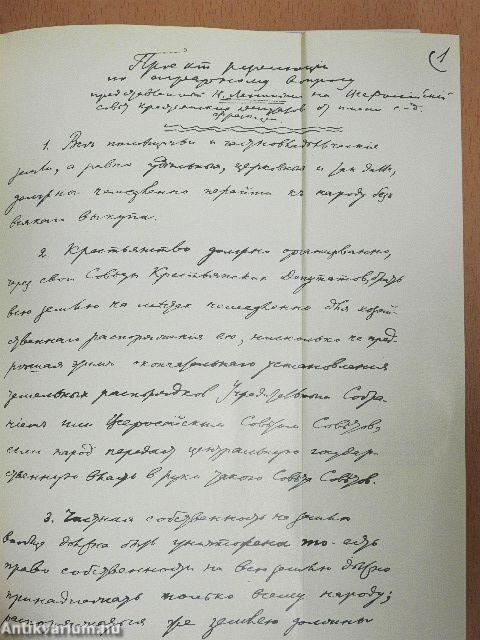 (1
Проект резолюции
по аграрному вопросу
предложенный Н. Лениным на Всероссийский
совет крестьянских депутатов от имени с.-д.
фракции.
1. Все помещичьи и частновладельческие
земли, а равно удельныя, церковныя и
должны немедленно перейти к народу без
всякого выкупа.
2. Крестьянство должно организованно,
через свои Советы Крестьянских Депутатов, брать
всю землю на местах немедленно для хозяй-
ственнаго распоряжения ею, нисколько не пред-
решая этим окончательнаго установления
земельных распорядков Учредительным Собра-
нием или Всероссийским Советом Советов,
если народ передаст центральную государ-
ственную власть в руки такого Совета Советов.
3. Частная собственность на землю
вообще должна быть уничтожена то-есть
право собственности на всю землю должно
принадлежать только всему народу;
распоряжаться же землею должны
Antikvarium.hu